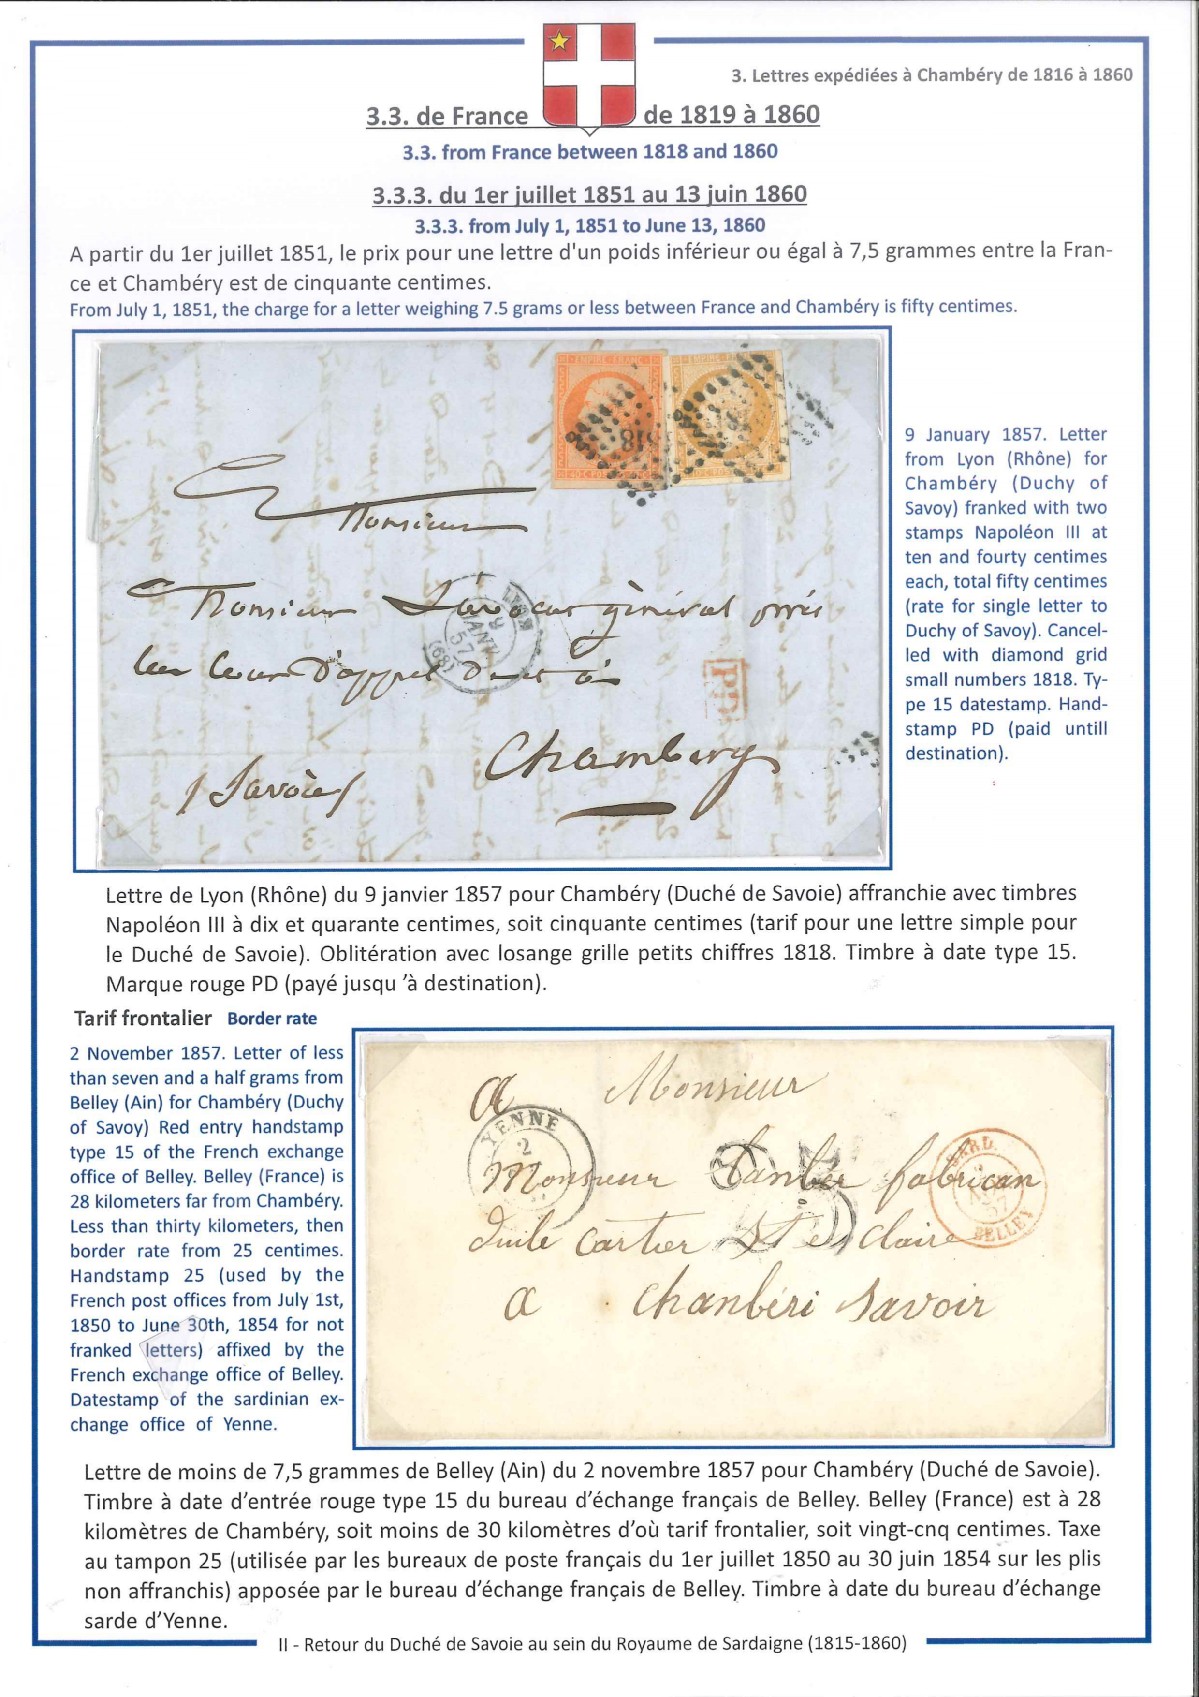 3. Lettres expédiées à Chambéry de 1816 à 1860
3.3. de France de 1819 à 1860
3.3. from France between 1818 and 1860
3.3.3. du 1er juillet 1851 au 13 juin 1860
3.3.3. from July 1, 1851 to June 13, 1860
A partir du 1er juillet 1851, le prix pour une lettre d'un poids inférieur ou égal à 7,5 grammes entre la Fran-
ce et Chambéry est de cinquante centimes.
From July 1, 1851, the charge for a letter weighing 7.5 grams or less between France and Chambéry is fifty centimes.
EMPIRE FRANC
1818
Monsieur
Monsieur L'avocat général près
la Cour D'appel
Chambery
Savoie
LYON
9
JANV
57
(68)
PD
9 January 1857. Letter
from Lyon (Rhône) for
Chambéry (Duchy of
Savoy) franked with two
stamps Napoléon III at
ten and fourty centimes
each, total fifty centimes
(rate for single letter to
Duchy of Savoy). Cancel-
led with diamond grid
small numbers 1818. Ty-
pe 15 datestamp. Hand-
stamp PD (paid untill
destination).
Lettre de Lyon (Rhône) du 9 janvier 1857 pour Chambéry (Duché de Savoie) affranchie avec timbres
Napoléon III à dix et quarante centimes, soit cinquante centimes (tarif pour une lettre simple pour
le Duché de Savoie). Oblitération avec losange grille petits chiffres 1818. Timbre à date type 15.
Marque rouge PD (payé jusqu 'à destination).
Tarif frontalier Border rate
2 November 1857. Letter of less
than seven and a half grams from
Belley (Ain) for Chambéry (Duchy
of Savoy) Red entry handstamp
type 15 of the French exchange
office of Belley. Belley (France) is
28 kilometers far from Chambéry.
Less than thirty kilometers, then
border rate from 25 centimes.
Handstamp 25 (used by the
French post offices from July 1st,
1850 to June 30th, 1854 for not
franked letters) affixed by the
French exchange office of Belley.
Datestamp of the sardinian ex-
change office of Yenne.
a Monsieur
YENNE
2
Monsieur fabrican
SARD.
2
57
BELLEY
duile cartier St e Claire
a chanbéri Savoir
Lettre de moins de 7,5 grammes de Belley (Ain) du 2 novembre 1857 pour Chambéry (Duché de Savoie).
Timbre à date d'entrée rouge type 15 du bureau d'échange français de Belley. Belley (France) est à 28
kilomètres de Chambéry, soit moins de 30 kilomètres d'où tarif frontalier, soit vingt-cnq centimes. Taxe
au tampon 25 (utilisée par les bureaux de poste français du 1er juillet 1850 au 30 juin 1854 sur les plis
non affranchis) apposée par le bureau d'échange français de Belley. Timbre à date du bureau d'échange
sarde d'Yenne.
II - Retour du Duché de Savoie au sein du Royaume de Sardaigne (1815-1860)